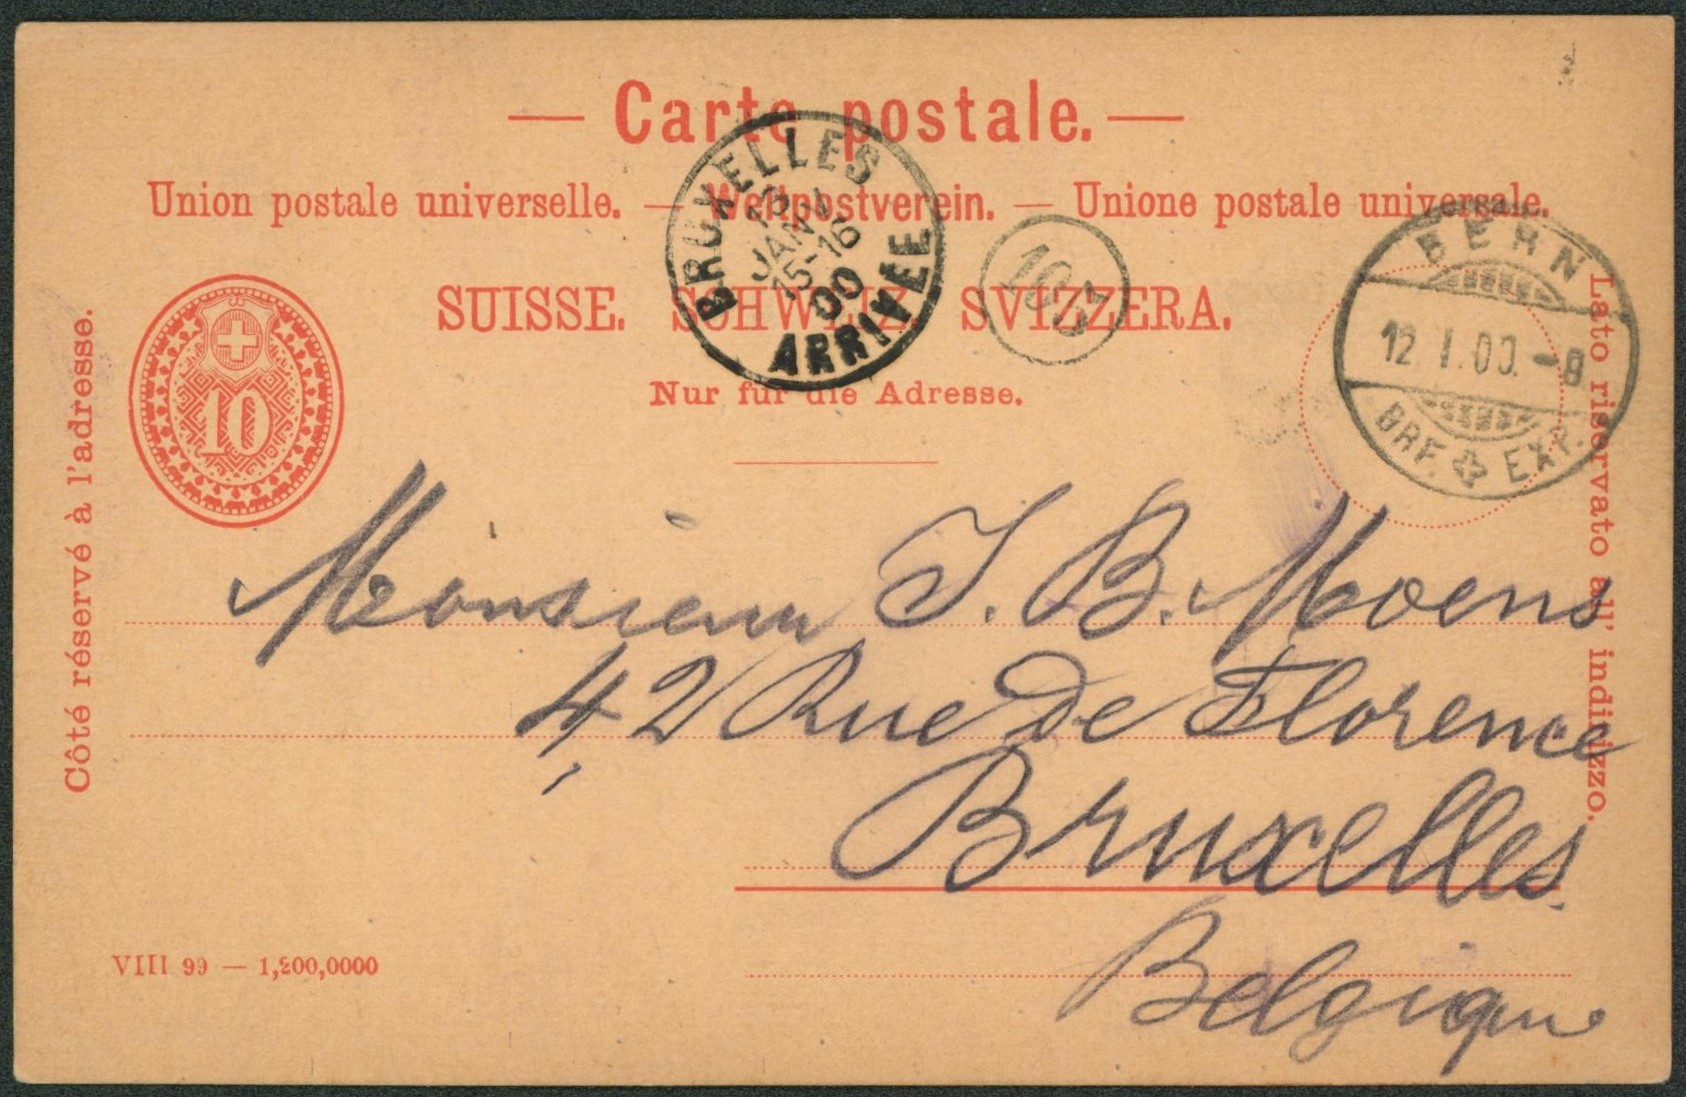 — Carte postale. —
Union postale universelle. — Weltpostverein. — Unione postale universale.
SUISSE. SCHWEIZ. SVIZZERA.
Nur für die Adresse.
Côté réservé à l'adresse.
Lato riservato all' indirizzo.
10
BRUXELLES
13
JANV
15-16
00
ARRIVÉE
BERN
12 I.00.-8
BRF. EXP.
Monsieur J. B. Moens
42 Rue de Florence
Bruxelles.
Belgique
VIII 99 — 1,200,0000